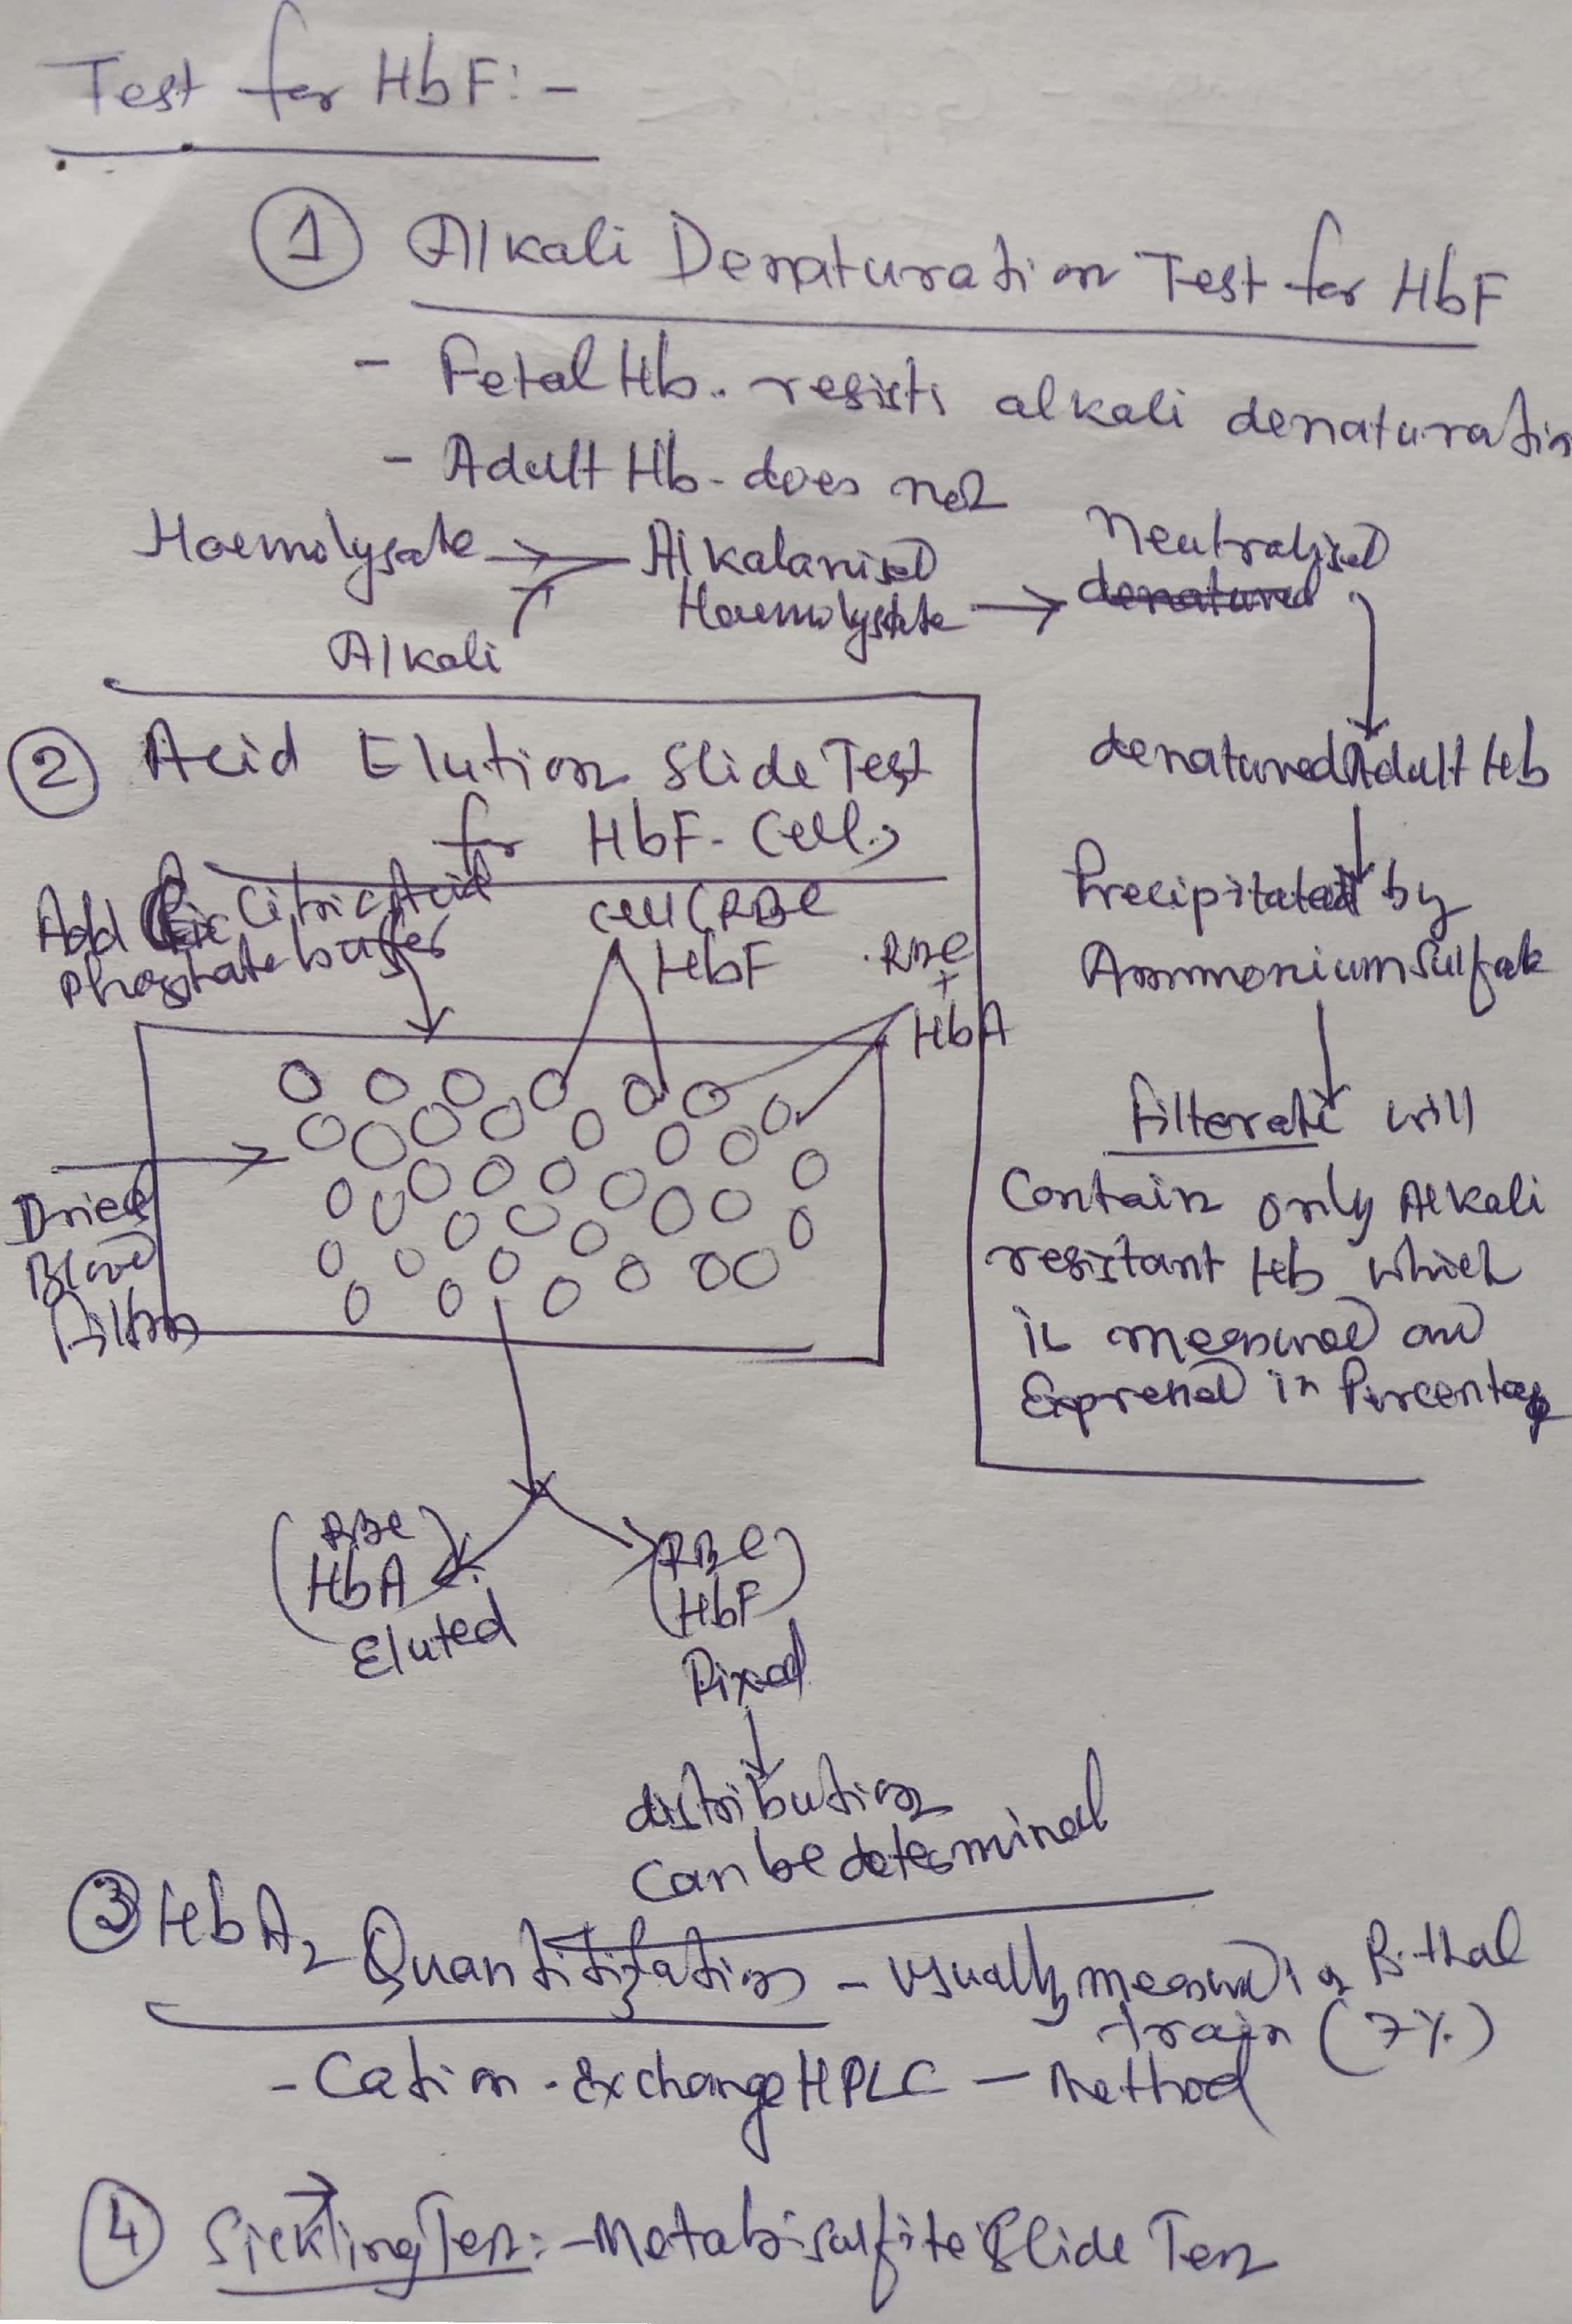 Test for HbF:-
① Alkali Denaturation Test for HbF
- Fetal Hb. resists alkali denaturation
- Adult Hb - does not
Haemolysate → Alkalanised
Haemolysate → Neutralised
denatured
Alkali
denatured Adult Hb
Precipitated by
Ammonium Sulfate
filterate will
Contain only Alkali
resistant Hb which
is measured and
Expressed in Percentage
② Acid Elution Slide Test
for HbF - Cells
Add Citric Acid
Phosphate buffer
Cell (RBC
HbF
RBC
+
HbA
Dried
Blood
films
(RBC)
HbA
Eluted
(RBC)
(HbF)
Fixed
distribution
can be determined
③ HbA2 Quantitization - usually measured B-thal
train (7%)
- Cation - Exchange HPLC - Method
④ Sickling Test: - Metabisulfite Slide Test